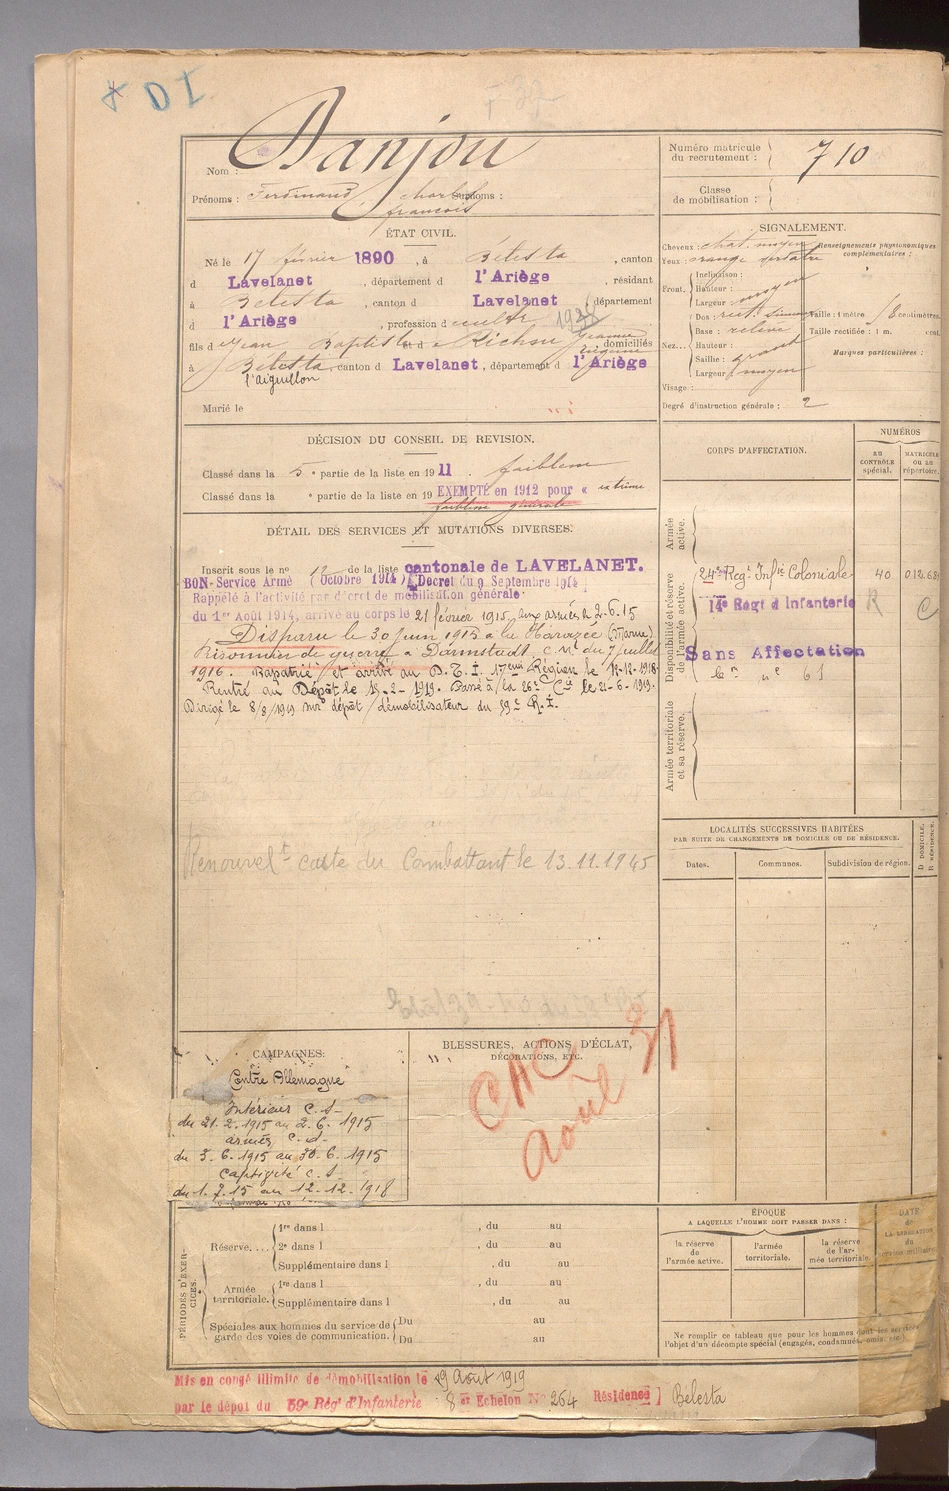 Nom : Danjou
Prénoms : Ferdinand Charles Surnoms :
françois
ÉTAT CIVIL.
Né le 17 février 1890, à Bélesta, canton
d Lavelanet, département d l'Ariège, résidant
à Bélesta, canton d Lavelanet, département
d l'Ariège, profession d cultr
fils d Jean Baptiste et d e Richou Jeanne domiciliés
à Bélesta, canton d Lavelanet, département d l'Ariège
l'aiguillon
Marié le
DÉCISION DU CONSEIL DE REVISION.
Classé dans la 5e partie de la liste en 1911. faiblesse
Classé dans la e partie de la liste en 19 EXEMPTÉ en 1912 pour « extrême
faiblesse générale
DÉTAIL DES SERVICES ET MUTATIONS DIVERSES.
Inscrit sous le no 12 de la liste cantonale de LAVELANET.
BON-Service Armé (Octobre 1914) Décret du 9 Septembre 1914
Rappelé à l'activité par décret de mobilisation générale
du 1er Août 1914, arrivé au corps le 21 février 1915, aux armées le 2.6.15
Disparu le 30 Juin 1915 à la Harazée (Marne).
Prisonnier de guerre à Darmstadt, c. nt du 7 juillet
1916. Rapatrié et arrivé au D.T.I. 17ème Région le 12-12-1918
Rentré au Dépôt le 19-2-1919. Passé à la 26e Cie le 21-6-1919.
Dirigé le 8/8/1919 sur dépôt démobilisateur du 59e R.I.
Renouvelt carte du Combattant le 13.11.1945
CAMPAGNES:
Contre Allemagne
Intérieur C.S-
du 21.2.1915 au 2.6.1915
armées C.d-
du 3.6.1915 au 30.6.1915
Captivité C.S-
du 1.7.15 au 12.12.1918
BLESSURES, ACTIONS D'ÉCLAT,
DÉCORATIONS, ETC.
CAC
Août 31
PÉRIODES D'EXERCICES.
Réserve.... 1re dans l , du au
2e dans l , du au
Supplémentaire dans l , du au
Armée territoriale. 1re dans l , du au
Supplémentaire dans l , du au
Spéciales aux hommes du service de garde des voies de communication. Du au
Du au
Mis en congé illimité de démobilisation le 19 Août 1919
par le dépôt du 59e Rég' d'Infanterie 8e Echelon No 264 Résidence] Belesta
Numéro matricule du recrutement : 710
Classe de mobilisation :
SIGNALEMENT.
Cheveux : chat. moyen
Yeux : orange verdâtre
Renseignements physionomiques complémentaires :
Front. Inclinaison :
Hauteur :
Largeur : moyen
Nez... Dos : rect. sinueux
Base : relevé
Hauteur :
Saillie : grand
Largeur : moyen
Taille : 1 mètre centimètres.
Taille rectifiée : 1 m. cent.
Marques particulières :
Visage :
Degré d'instruction générale : 2
CORPS D'AFFECTATION.
NUMÉROS
AU CONTRÔLE spécial.
MATRICULE ou au répertoire.
Armée active.
Disponibilité et réserve de l'armée active.
24e Regt Infie Coloniale 40
14e Régt d'Infanterie R C
Sans Affectation
Armée territoriale et sa réserve.
LOCALITÉS SUCCESSIVES HABITÉES
PAR SUITE DE CHANGEMENTS DE DOMICILE OU DE RÉSIDENCE.
Dates. Communes. Subdivision de région.
D DOMICILE. R RÉSIDENCE.
ÉPOQUE
A LAQUELLE L'HOMME DOIT PASSER DANS :
la réserve de l'armée active.
l'armée territoriale.
la réserve de l'armée territoriale.
DATE de LA LIBÉRATION du service militaire.
Ne remplir ce tableau que pour les hommes dont les services
l'objet d'un décompte spécial (engagés, condamnés, omis etc.)